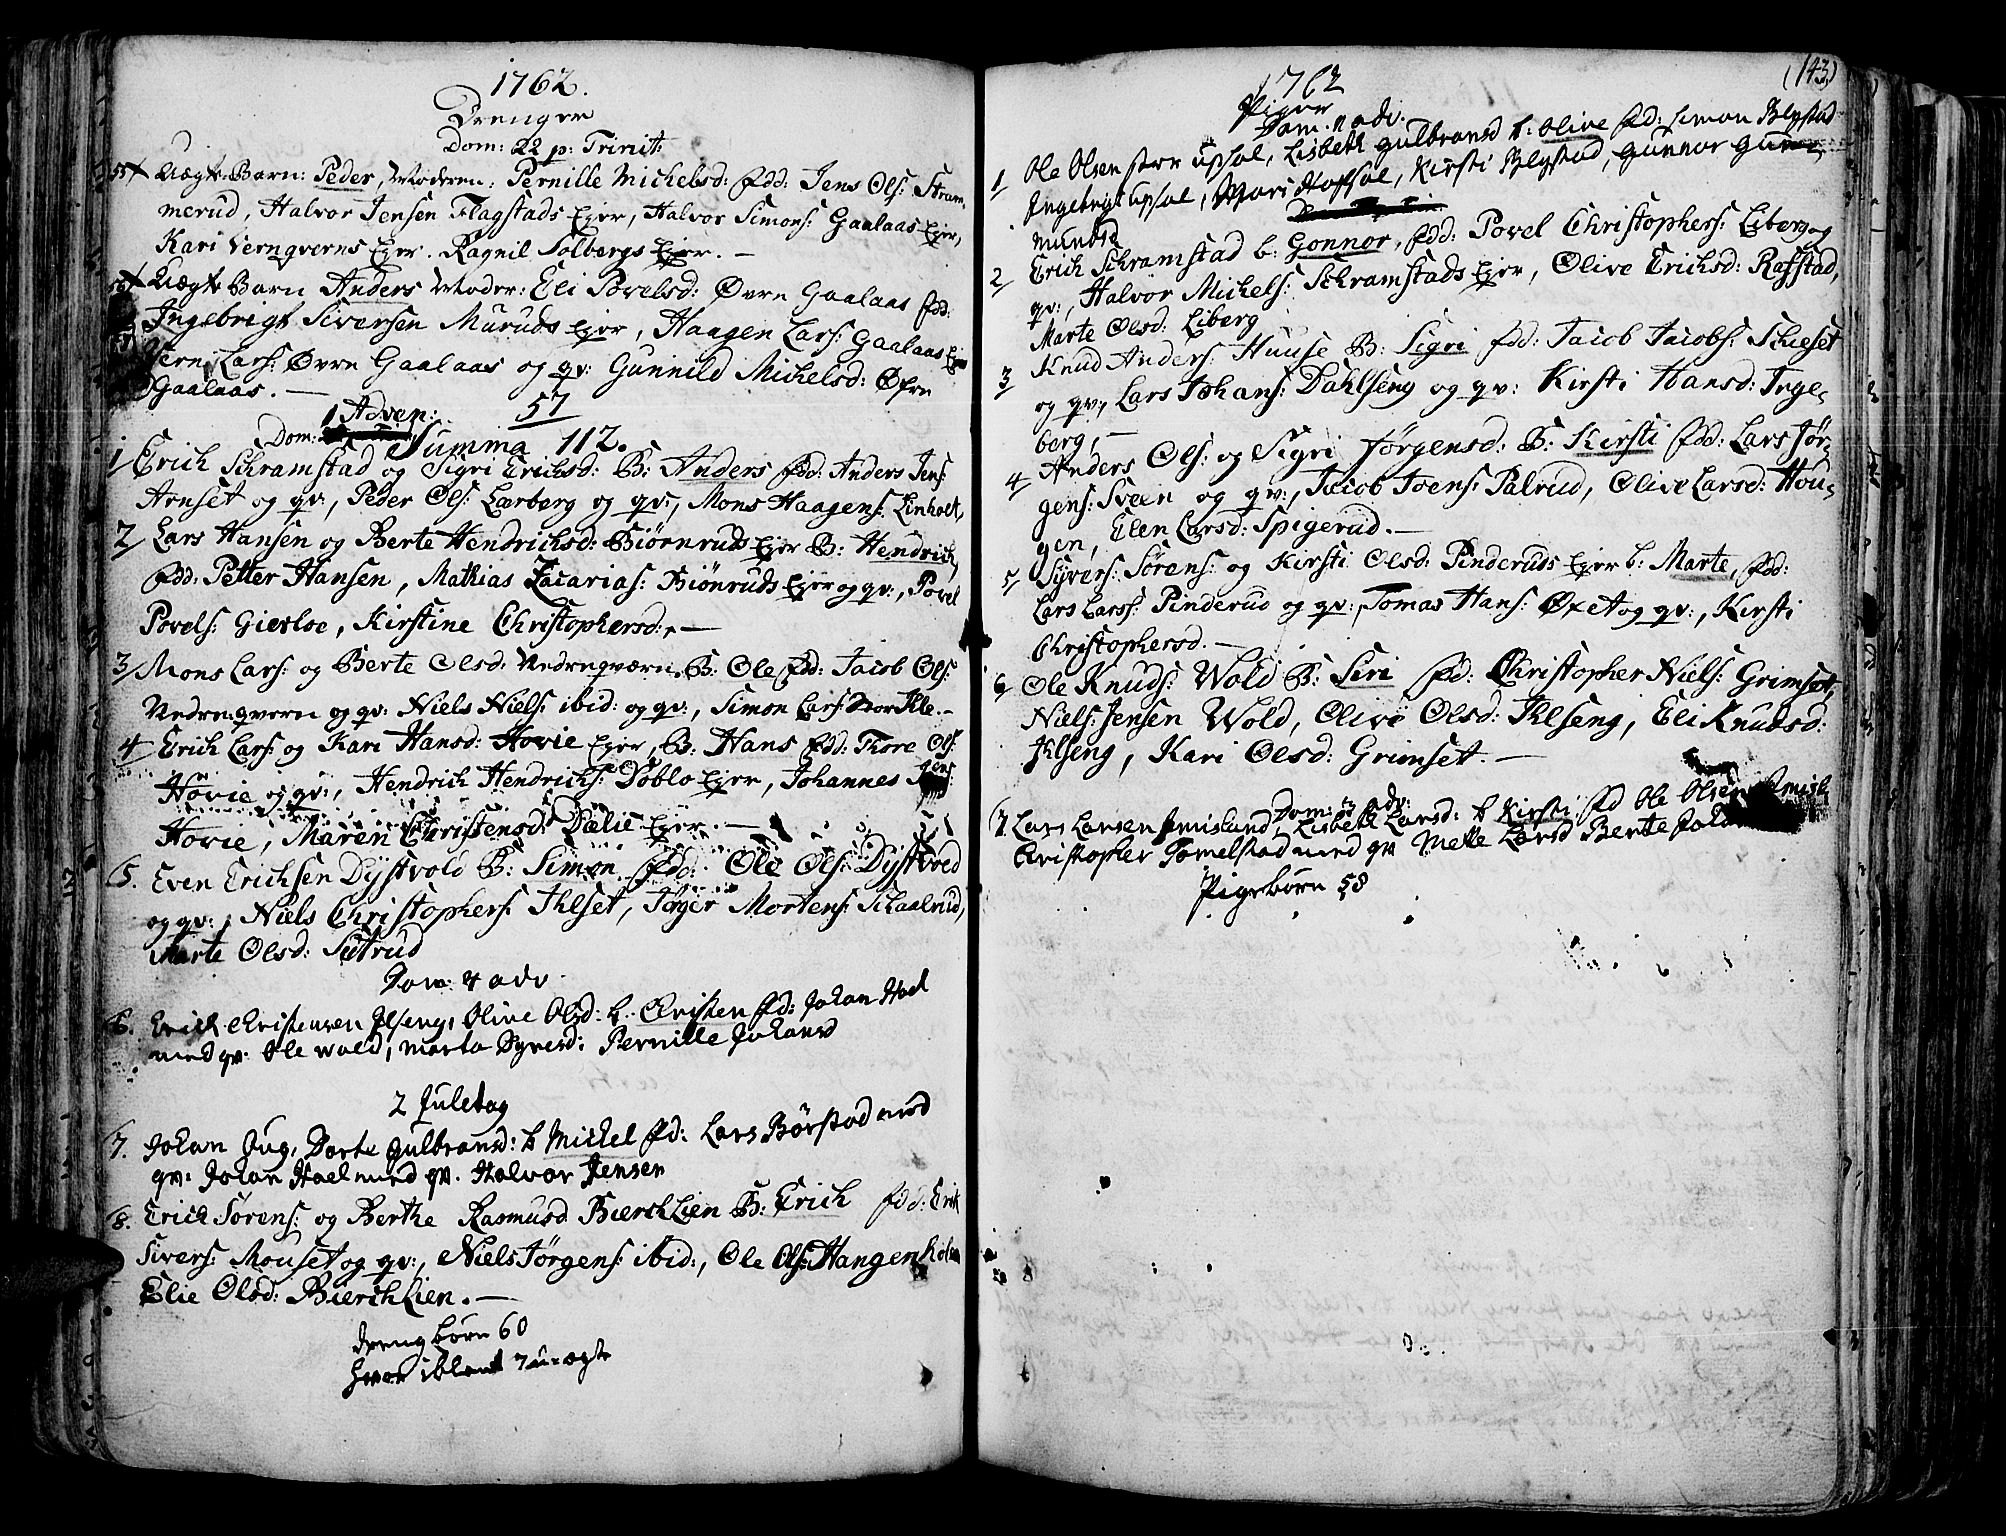 1762.
Drenger
Dom: 22 p: Trinit:
55 Uægte Barn: Peder, Moderen: Pernille Michelsd: fdd: Jens Ols: Stram-
merud, Halvor Jensen Flagstads Ejer, Halvor Simons: Gaalaas Ejer,
Kari Vernqverns Ejer. Ragnil Solbergs Ejer. —
56 Uægte Barn Anders Moder: Eli Povelsd: Øvre Gaalaas fdd:
Ingebrigt Siversen Muruds Ejer, Haagen Lars: Gaalaas Ejer
Lars: Øvre Gaalaas og qv: Gunnild Michelsd: Øfre
Gaalaas. —
57
Dom: 1 Adven:
Summa 112.
1 Erich Schramstad og Sigri Erichsd: B: Anders fdd: Anders Jens:
Arnset og qv:, Peder Ols: Larberg og qv:, Mons Haagens: Linholt,
2 Lars Hansen og Berte Hendrichsd: Biørnruds Ejer B: Hendrich,
fdd: Petter Hansen, Mathias Zacarias: Biönruds Ejer og qv:, Povel
Povels: Gierloe, Kirstine Christophersd: —
3 Mons Lars: og Berte Olsd: Nedreqværn. B: Ole fdd: Jacob Ols:
Nedreqvern og qv: Niels Niels: ibid: og qv:, Simon Lars: Stor Ihle. —
4 Erich Lars: og Kari Hansd: Hovie Ejer, B: Hans fdd: Thore Ols:
Hovie og qv:, Hendrich Hendrichs: Doblo Ejer, Johannes Jens:
Hovie, Maren Christensd: Dælie Ejer. —
5. Even Erichsen Dijstvold B: Simon fdd: Ole Ols: Dijstvold
og qv:, Niels Christophers: Ihlset, Jöger Mortens: Schaalrud,
Marte Olsd: Sætrud
Dom: 4 adv
6. Erich Christensen Ilseng, Olive Olsd: b: Christen fd: Johan Hoel
med qv: Ole Wold, Marta Syversd: Pernille Johansd
2 Juletag
7. Johan Aug, Dorte Gulbransd: b Michel fd: Lars Börstad med
qv: Johan Hoel med qv. Halvor Jensen
8. Erich Sörens: og Berthe Rasmusd BierchLien B: Erich fdd: Erik
Sivers: Mouset og qv:, Niels Jørgens: ibid:, Ole Ols: Hangenholen
Elie Olsd: BierchLien. —
Dreng börn 60
hvor iblant 7 u=ægte
(143)
1762
Piger
Dom. 2 adv.
1 Ole Olsen stor Upsal, Lisbeth Gulbransd b: Olive fd: Simon Blystad
Ingebrigt Upsal, Mari Hofsol, Kirsti Blystad, Gunnor Gu
mundsd
2 Erich Schramstad b: Gonnor, fdd: Povel Christophers: Liberg og
qv:, Halvor Michels: Schramstads Ejer, Olive Erichsd: Rafstad,
Marte Olsd: Liberg
3 Knud Anders: Huuse B: Sigri fdd: Jacob Jacobs: Schieset
og qv:, Lars Johans: Dahlseng og qv: Kirsti Hansd: Inge-
berg, —
4 Anders Ols: og Sigri Jørgensd: B: Kirsti fdd: Lars Jör-
gens: Sveen og qv:, Jacob Joens: Palrud, Olive Larsd: Hou-
gen, Elen Larsd: Spigerud. —
5 Syvers: Sörens: og Kirsti Olsd: Pinderuds Ejer b: Marte, fdd:
Lars Larss: Pinderud og qv:, Tomas Hans: Øxet og qv:, Kirsti
Christophersd. —
6 Ole Knuds: Wold B: Siri fd: Christopher Niels: Grimset,
Niels: Jensen Wold, Olive Olsd: Ihlseng, Eli Knudsd:
Ihlseng, Kari Olsd: Grimset. —
Dom: 3 adv:
7 Lars Larsen Jemislund, Lisbeth Larsd: b Kirsti fd Ole Olsen
Christopher Tomelstad med qv Mette Larsd Berte
Pigebörn 58